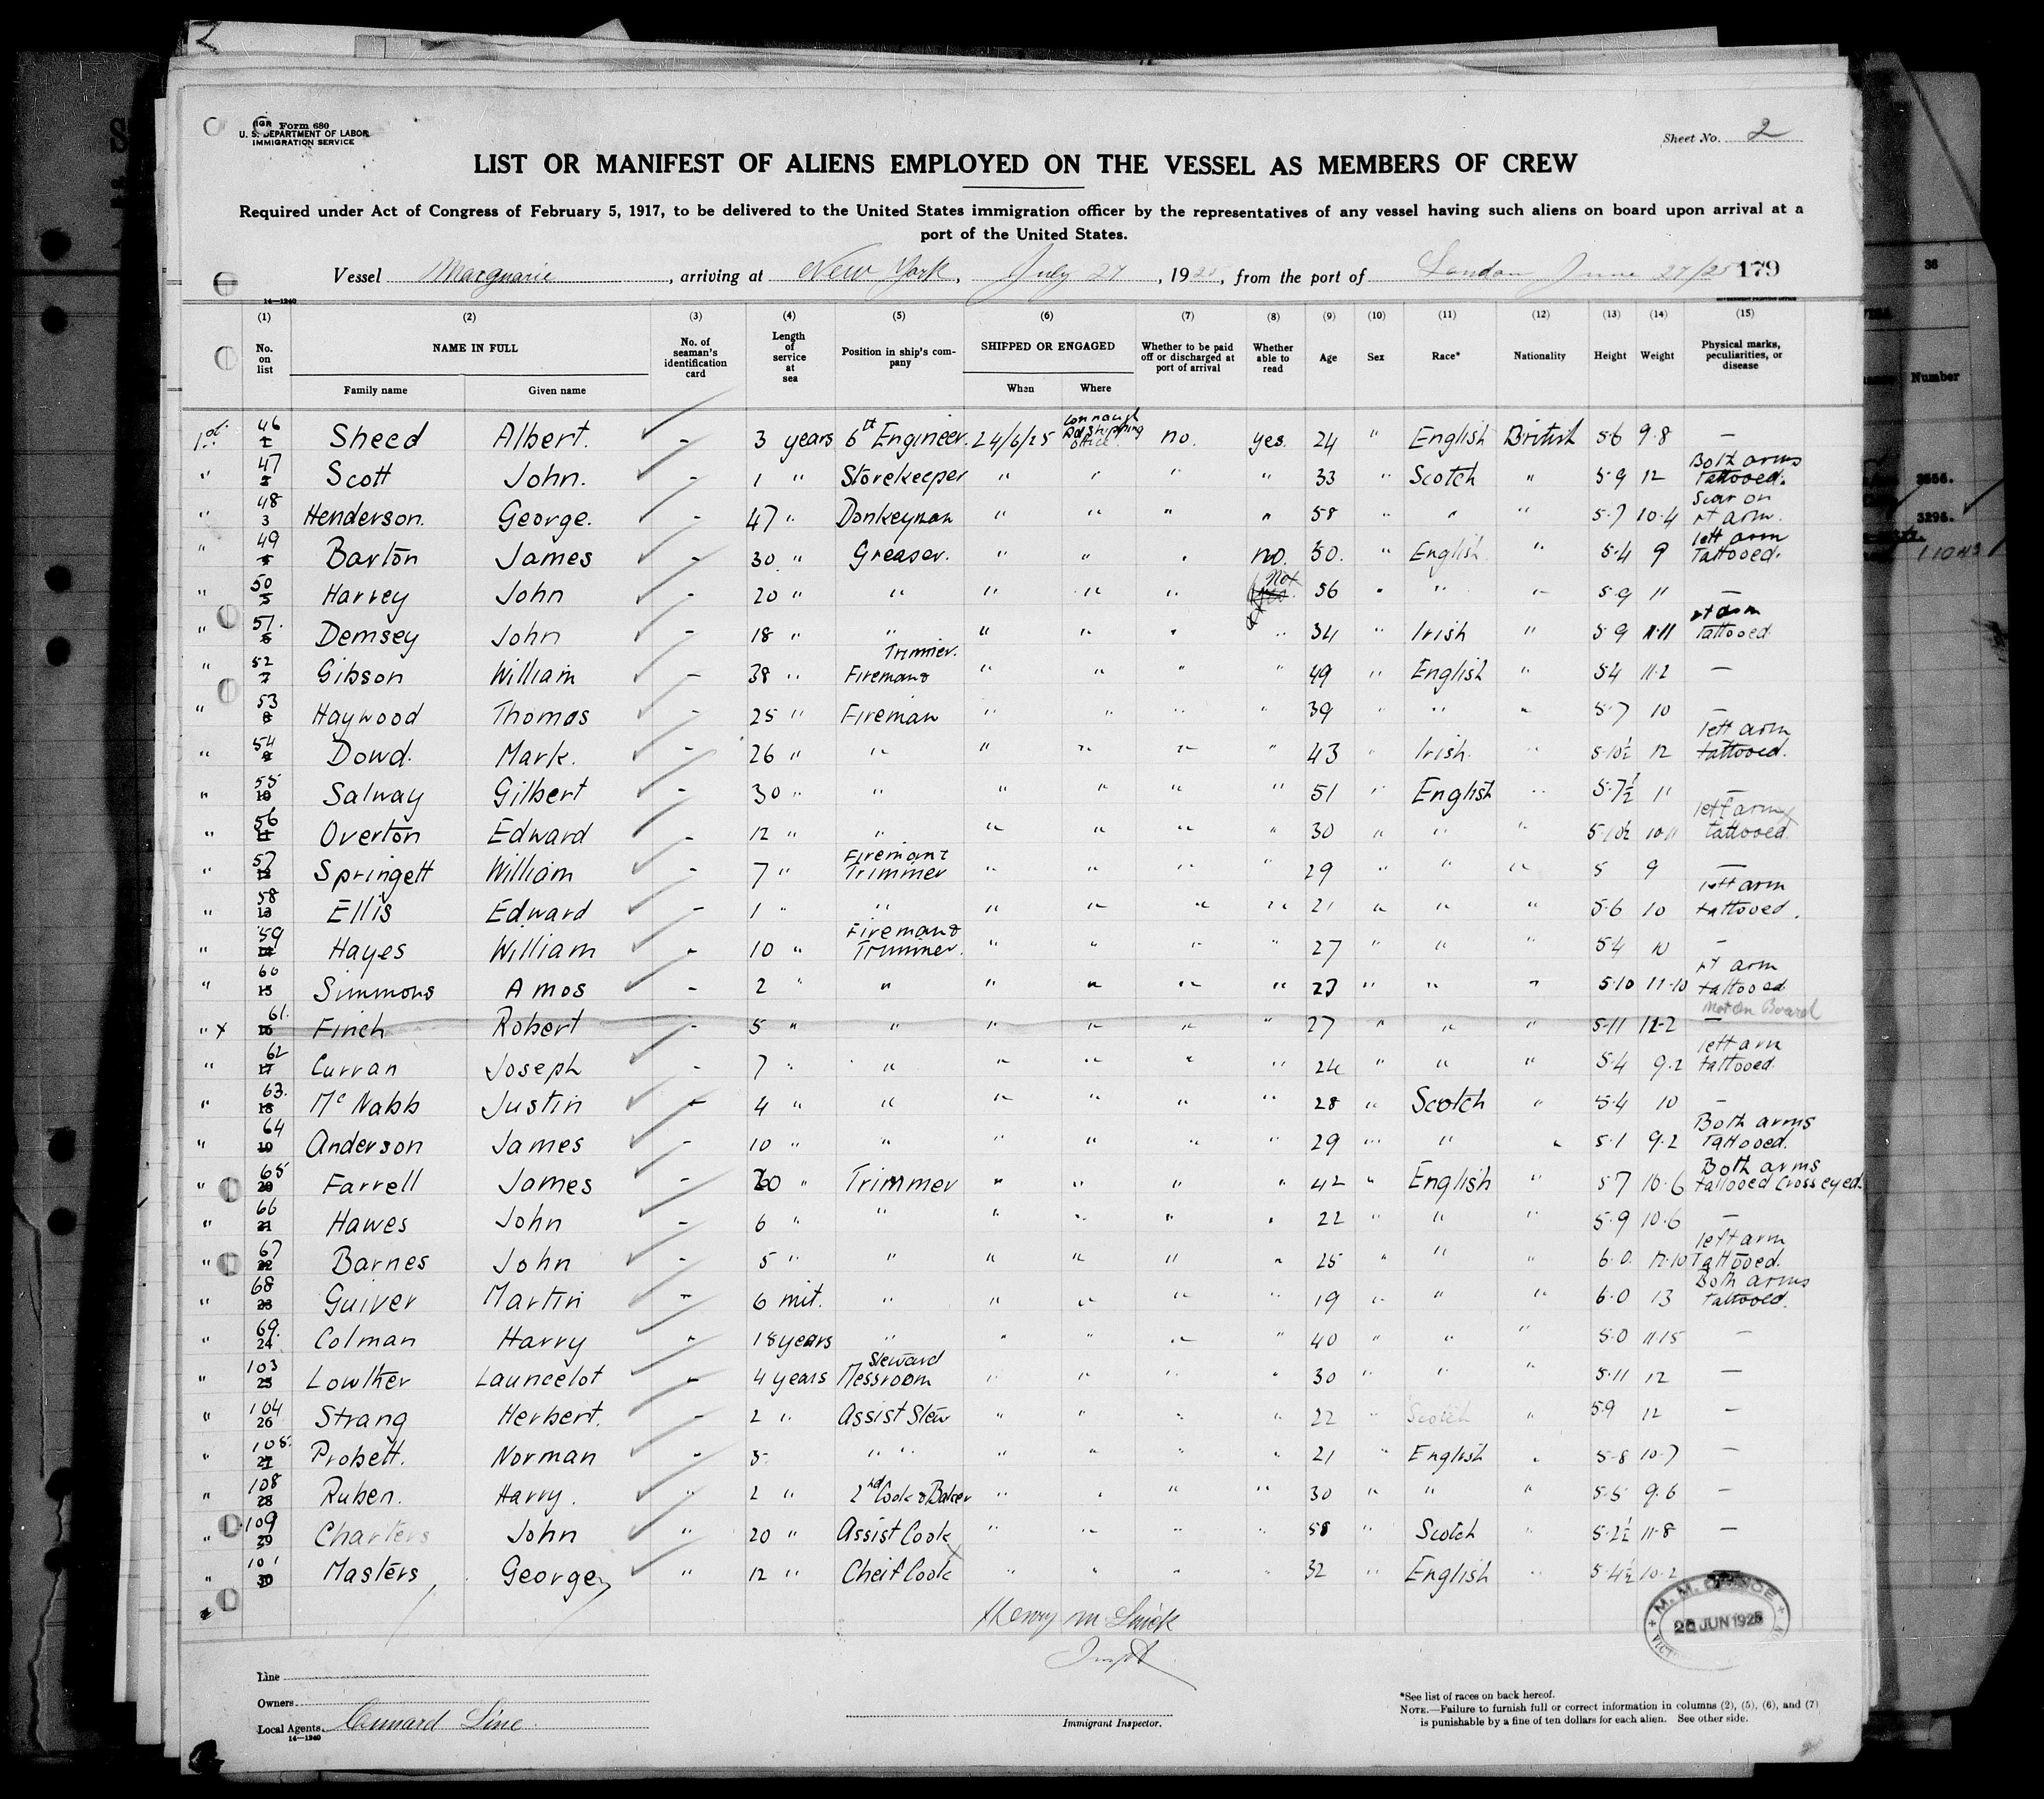 IGR Form 680
U. S. DEPARTMENT OF LABOR
IMMIGRATION SERVICE
Sheet No. 2
LIST OR MANIFEST OF ALIENS EMPLOYED ON THE VESSEL AS MEMBERS OF CREW
Required under Act of Congress of February 5, 1917, to be delivered to the United States immigration officer by the representatives of any vessel having such aliens on board upon arrival at a
port of the United States.
Vessel Macquarie, arriving at New York, July 27, 1925, from the port of London June 27/25 179
14—1240
(1) (2) (3) (4) (5) (6) (7) (8) (9) (10) (11) (12) (13) (14) (15)
No. on list NAME IN FULL No. of seaman's identification card Length of service at sea Position in ship's company SHIPPED OR ENGAGED Whether to be paid off or discharged at port of arrival Whether able to read Age Sex Race* Nationality Height Weight Physical marks, peculiarities, or disease
Family name Given name When Where
1st 46 1 Sheed Albert. - 3 years 6th Engineer. 24/6/25 shipping office no. yes. 24 " English British 5 6 9·8 —
" 47 2 Scott John. - 1 " Storekeeper " " " " 33 " Scotch " 5·9 12 Both arms tattooed.
" 48 3 Henderson. George. - 47 " Donkeyman " " " " 58 " " " 5·7 10·4 Scar on rt arm.
" 49 4 Barton James - 30 " Greaser. " " " no. 50. " English " 5·4 9 left arm Tattooed.
" 50 5 Harvey John - 20 " " " " " not 56 " " " 5·9 11 —
" 51. 6 Demsey John - 18 " " " " " " 34 " Irish " 5·9 11·11 rt arm tattooed.
" 52 7 Gibson William - 38 " Fireman & Trimmer. " " " " 49 " English " 5 4 11·2 —
" 53 8 Haywood Thomas - 25 " Fireman " " " " 39 " " " 5·7 10 —
" 54 9 Dowd. Mark. - 26 " " " " " " 43 " Irish. " 5·10½ 12 left arm tattooed.
" 55 10 Salway Gilbert - 30 " " " " " " 51 " English " 5·7½ 11 —
" 56 11 Overton Edward - 12 " " " " " " 30 " " " 5·10½ 10·11 left arm tattooed.
" 57 12 Springett William - 7 " Fireman & Trimmer " " " " 29 " " " 5 9 —
" 58 13 Ellis Edward - 1 " " " " " " 21 " " " 5·6 10 left arm tattooed.
" 59 14 Hayes William - 10 " Fireman & Trimmer. " " " " 27 " " " 5·4 10 —
" 60 15 Simmons Amos - 2 " " " " " " 23 " " " 5·10 11·10 rt arm tattooed
" x 61. 16 Finch Robert - 5 " " " " " " 27 " " " 5·11 12·2 — Not on Board
" 62 17 Curran Joseph - 7 " " " " " " 24 " " " 5·4 9·2 left arm tattooed.
" 63. 18 McNabb Justin - 4 " " " " " " 28 " Scotch " 5·4 10 —
" 64 19 Anderson James - 10 " " " " " " 29 " " " 5·1 9·2 Both arms Tattooed.
" 65 20 Farrell James - 20 " Trimmer " " " " 42 " English " 5·7 10·6 Both arms tattooed Cross eyed.
" 66 21 Hawes John - 6 " " " " " " 22 " " " 5·9 10·6 —
" 67 22 Barnes John - 5 " " " " " " 25 " " " 6·0. 12·10 left arm Tattooed.
" 68 23 Guiver Martin - 6 mit. " " " " " 19 " " " 6·0 13 Both arms tattooed.
" 69. 24 Colman Harry " 18 years " " " " " 40 " " " 5·0 11·15 —
" 103 25 Lowther Launcelot - 4 years Messroom Steward " " " " 30 " " " 5·11 12 —
" 104 26 Strang Herbert. - 2 " Assist Stew " " " " 22 " Scotch " 5 9 12 —
" 105. 27 Probett. Norman " 3 " " " " " " 21 " English " 5·8 10·7 —
" 108 28 Ruben. Harry. " 2 " 2nd Cook & Baker " " " " 30 " " " 5·5 9·6 —
" 109 29 Charters John " 20 " Assist Cook " " " " 58 " Scotch " 5·2½ 11·8 —
" 101 30 Masters George " 12 " Cheif Cook " " " " 32 " English " 5·4½ 10·2
M. M. OFFICE
26 JUN 1925
Line
Owners
Local Agents Cunard Line.
14—1240
Immigrant Inspector.
*See list of races on back hereof.
NOTE.—Failure to furnish full or correct information in columns (2), (5), (6), and (7)
is punishable by a fine of ten dollars for each alien. See other side.
36
Number
3296.
11043